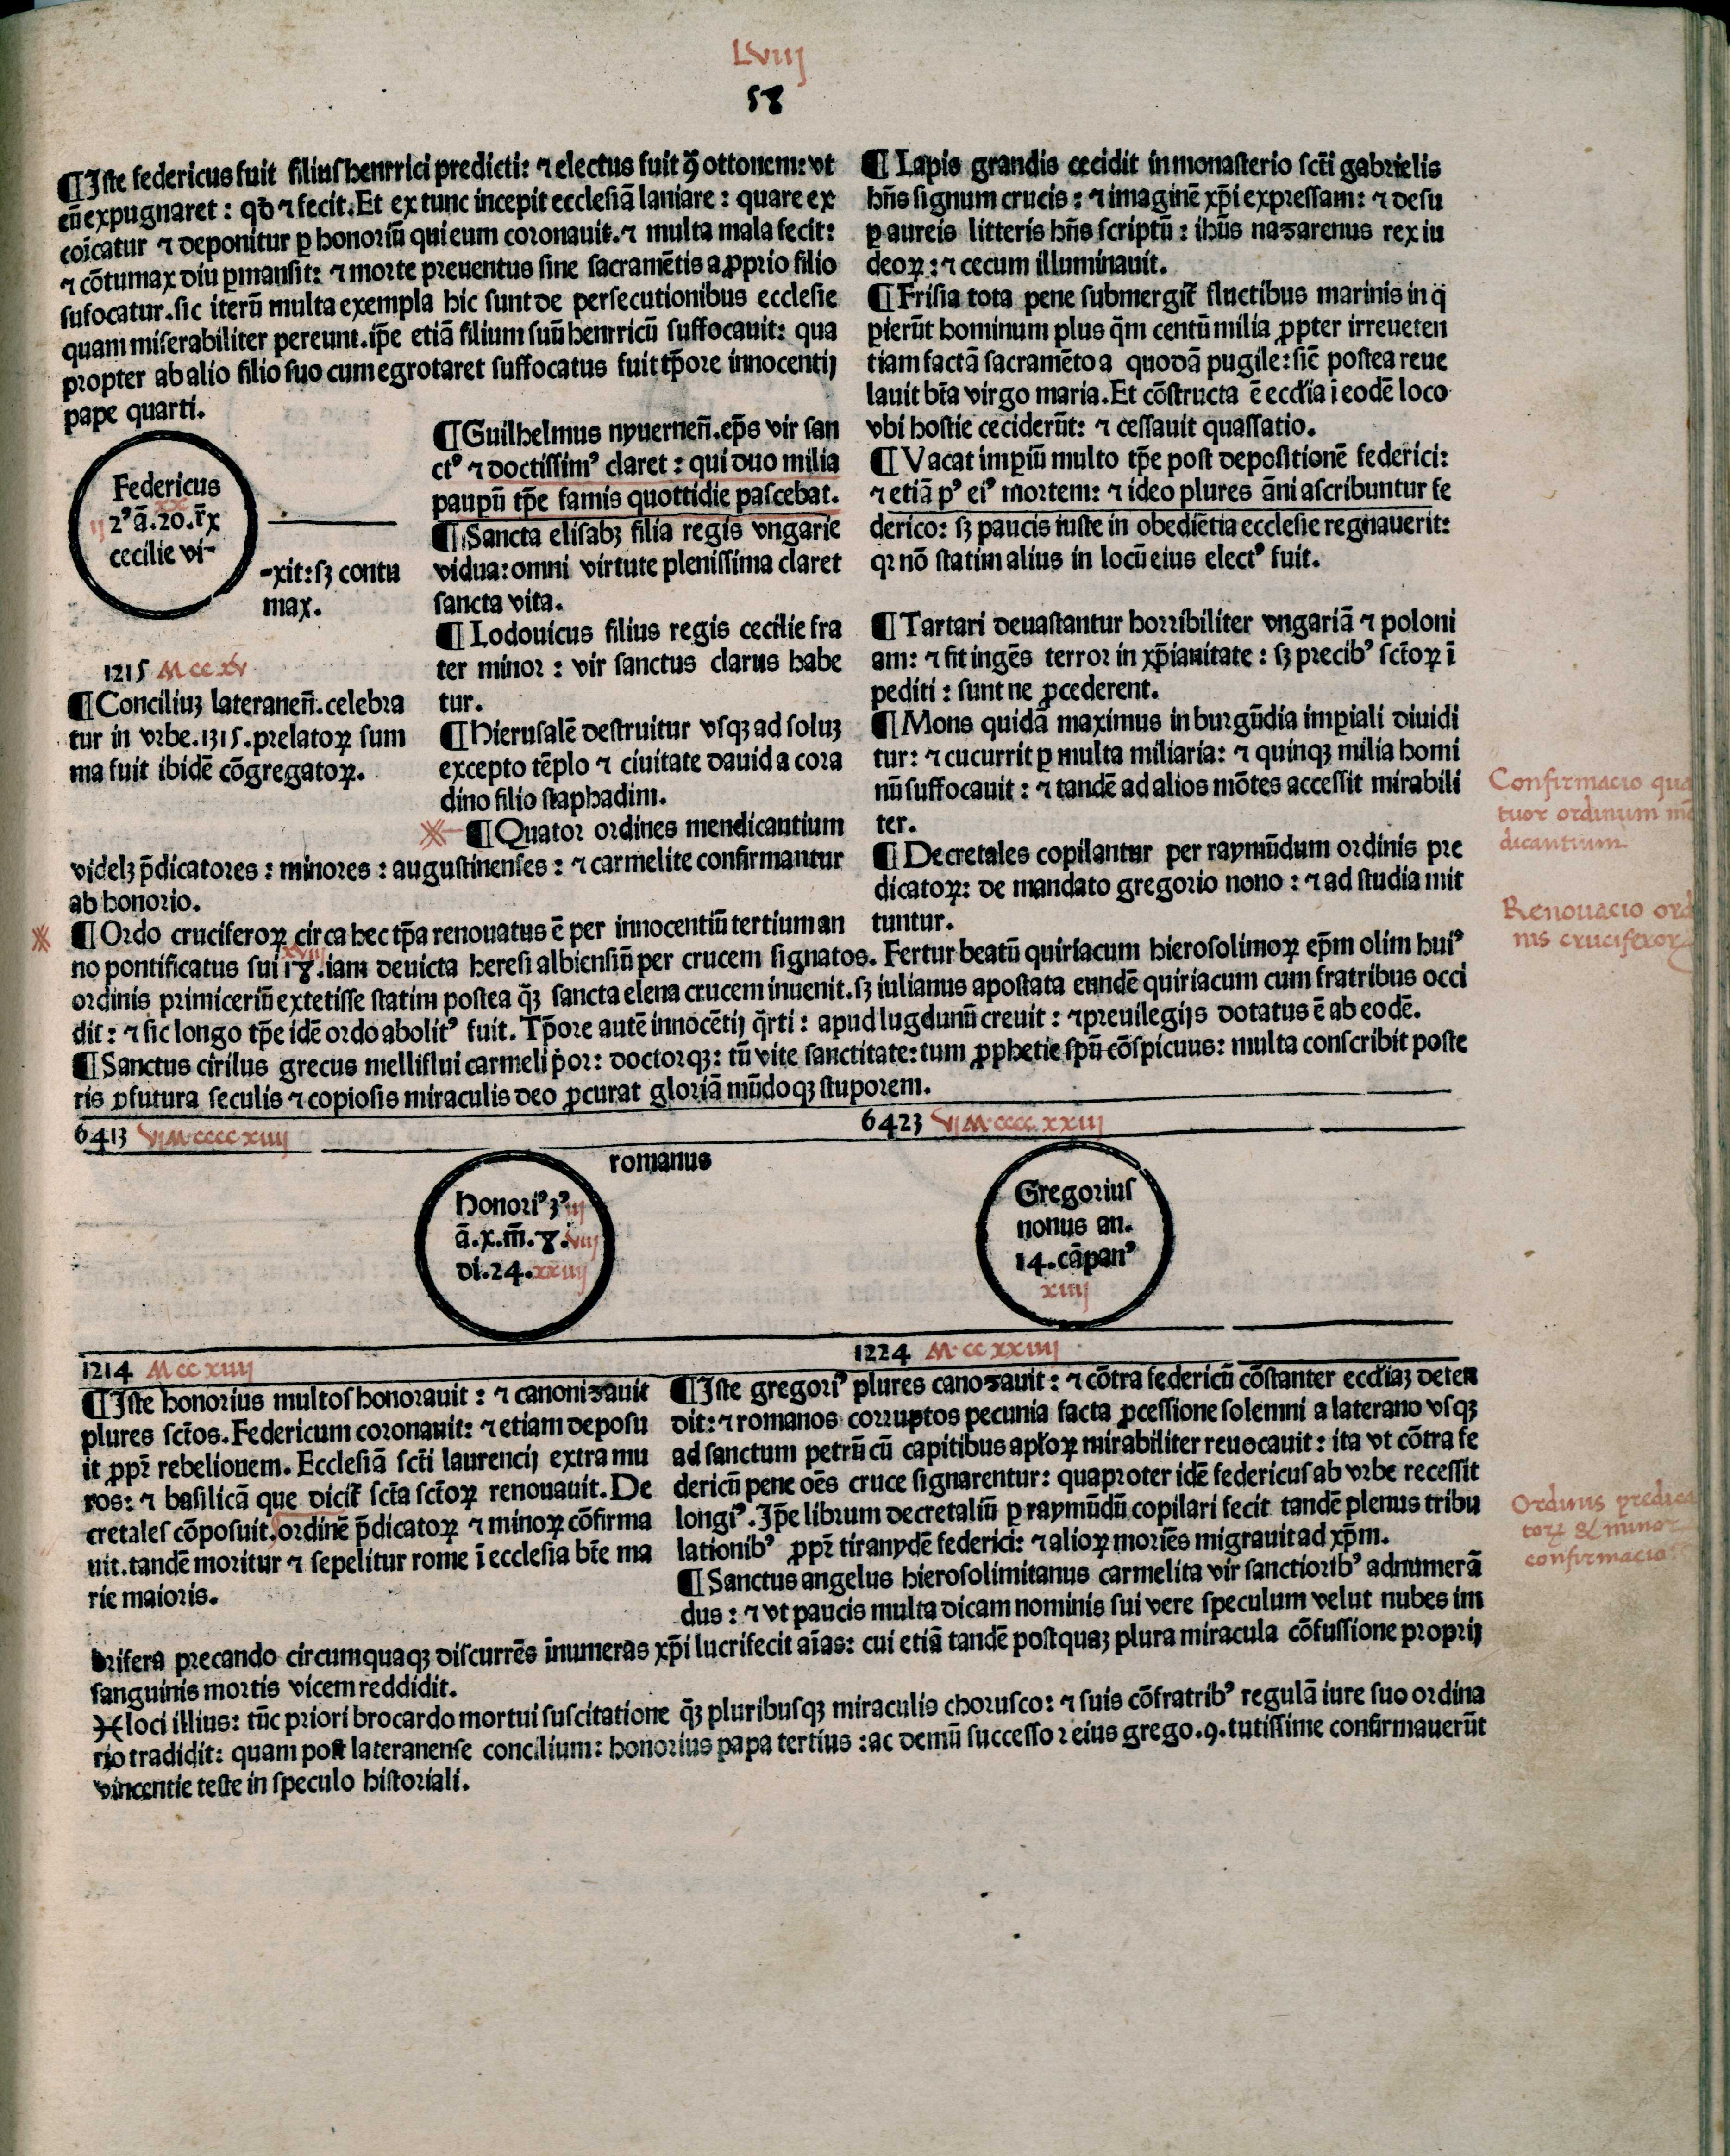 LViij
58
¶Iste federicus fuit filius henrrici predicti: ⁊ electus fuit ꝯ̃ ottonem: vt
eū expugnaret: qđ ⁊ fecit. Et ex tunc incepit ecclesiā laniare: quare ex
coīcatur ⁊ deponitur ꝑ honoriū qui eum coronauit. ⁊ multa mala fecit:
⁊ cōtumax diu ꝑmansit: ⁊ morte preuentus sine sacramētis a ꝓprio filio
sufocatur. sic iterū multa exempla hic sunt de persecutionibus ecclesie
quam miserabiliter pereunt. ip̄e etiā filium suū henrricū suffocauit: qua
propter ab alio filio suo cum egrotaret suffocatus fuit tp̄ore innocentij
pape quarti.
Federicus
2ꝰ ā. 20. r̄x
cecilie vi-
-xit: sꝫ contu
max.
1215 M cc xv
¶Conciliuꝫ lateraneñ. celebra
tur in vrbe. 1315. prelatoꝝ sum
ma fuit ibidē cōgregatoꝝ.
¶Guilhelmus nyuerneñ. ep̄s vir san
ctꝰ ⁊ doctissimꝰ claret: qui duo milia
paupū tp̄e famis quottidie pascebat.
¶Sancta elisabꝫ filia regis vngarie
vidua: omni virtute plenissima claret
sancta vita.
¶Lodouicus filius regis cecilie fra
ter minor: vir sanctus clarus habe
tur.
¶Hierusalē destruitur vsqꝫ ad soluꝫ
excepto tēplo ⁊ ciuitate dauid a cora
dino filio staphadim.
¶Quator ordines mendicantium
videlꝫ p̄dicatores: minores: augustinenses: ⁊ carmelite confirmantur
ab honorio.
¶Ordo cruciferoꝝ circa hec tp̄a renouatus ē per innocentiū tertium an
¶Lapis grandis cecidit in monasterio sc̄ti gabrielis
hn̄s signum crucis: ⁊ imaginē xp̄i expressam: ⁊ desu
ꝑ aureis litteris hn̄s scriptū: ihūs nazarenus rex iu
deoꝝ: ⁊ cecum illuminauit.
¶Frisia tota pene submergit̄ fluctibus marinis in q̄
ꝑierūt hominum plus q̄m centū milia ꝓpter irreueten
tiam factā sacramēto a quodā pugile: siē postea reue
lauit bt̄a virgo maria. Et cōstructa ē eccl̄ia ī eodē loco
vbi hostie ceciderūt: ⁊ cessauit quassatio.
¶Vacat imꝑiū multo tp̄e post depositionē federici:
⁊ etiā pꝰ eiꝰ mortem: ⁊ ideo plures āni ascribuntur fe
derico: sꝫ paucis iuste in obediētia ecclesie regnauerit:
qꝛ nō statim alius in locū eius electꝰ fuit.
¶Tartari deuastantur horribiliter vngariā ⁊ poloni
am: ⁊ fit ingēs terror in xp̄ianitate: sꝫ precibꝰ sc̄toꝝ ī
pediti: sunt ne ꝓcederent.
¶Mons quidā maximus in burgūdia imꝑiali diuidi
tur: ⁊ cucurrit ꝑ multa miliaria: ⁊ quinqꝫ milia homi
nū suffocauit: ⁊ tandē ad alios mōtes accessit mirabili
ter.
¶Decretales copilantur per raymūdum ordinis pre
dicatoꝝ: de mandato gregorio nono: ⁊ ad studia mit
tuntur.
Confirmacio qua
tuor ordinum mē
dicantium
Renouacio ord
nis cruciferoꝝ
xviij
no pontificatus sui 18. iam deuicta heresi albiensiū per crucem signatos. Fertur beatū quiriacum hierosolimoꝝ ep̄m olim huiꝰ
ordinis primiceriū extetisse statim postea q̄ꝫ sancta elena crucem inuenit. sꝫ iulianus apostata eundē quiriacum cum fratribus occi
dit: ⁊ sic longo tp̄e idē ordo abolitꝰ fuit. Tp̄ore autē innocētij q̄rti: apud lugdunū creuit: ⁊ preuilegijs dotatus ē ab eodē.
¶Sanctus cirilus grecus melliflui carmeli p̄or: doctorqꝫ: tū vite sanctitate: tum ꝓphetie spū cōspicuus: multa conscribit poste
ris ꝓfutura seculis ⁊ copiosis miraculis deo ꝓcurat gloriā mūdoqꝫ stuporem.
6413 VI M cccc xiiij
6423 VI M cccc xxiij
romanus
Honoriꝰ 3ꝰ iij
ā. x. m̄. 8. viij
di. 24. xxiiij
Gregorius
nonus an.
14. cāpanꝰ
xiiij
1214 M cc xiiij
1224 M cc xxiiij
¶Iste honorius multos honorauit: ⁊ canonizauit
plures sc̄tos. Federicum coronauit: ⁊ etiam deposu
it ꝓpꝛ̄ rebelionem. Ecclesiā sc̄ti laurencij extra mu
ros: ⁊ basilicā que dicit̄ sc̄ta sc̄toꝝ renouauit. De
cretales cōposuit. ordinē p̄dicatoꝝ ⁊ minoꝝ cōfirma
uit. tandē moritur ⁊ sepelitur rome ī ecclesia bt̄e ma
rie maioris.
¶Iste gregoriꝰ plures canozauit: ⁊ cōtra federicū cōstanter eccl̄iaꝫ deten
dit: ⁊ romanos corruptos pecunia facta ꝓcessione solemni a laterano vsqꝫ
ad sanctum petrū cū capitibus apl̄oꝝ mirabiliter reuocauit: ita vt cōtra fe
dericū pene oēs cruce signarentur: quaproter idē federicus ab vrbe recessit
longiꝰ. Ip̄e librum decretaliū ꝑ raymūdū copilari fecit tandē plenus tribu
lationibꝰ ꝓpꝛ̄ tiranydē federici: ⁊ alioꝝ moriēs migrauit ad xp̄m.
¶Sanctus angelus hierosolimitanus carmelita vir sanctioribꝰ adnumerā
dus: ⁊ vt paucis multa dicam nominis sui vere speculum velut nubes im
Ordinis predica
toꝝ & minor
confirmacio
brifera precando circumquaqꝫ discurrēs īnumeras xp̄i lucrifecit aīas: cui etiā tandē postquaꝫ plura miracula cōfussione proprij
sanguinis mortis vicem reddidit.
loci illius: tūc priori brocardo mortui suscitatione q̄ꝫ pluribusqꝫ miraculis chorusco: ⁊ suis cōfratribꝰ regulā iure suo ordina
rio tradidit: quam post lateranense concilium: honorius papa tertius: ac demū successor eius grego. 9. tutissime confirmauerūt
vincentie teste in speculo historiali.